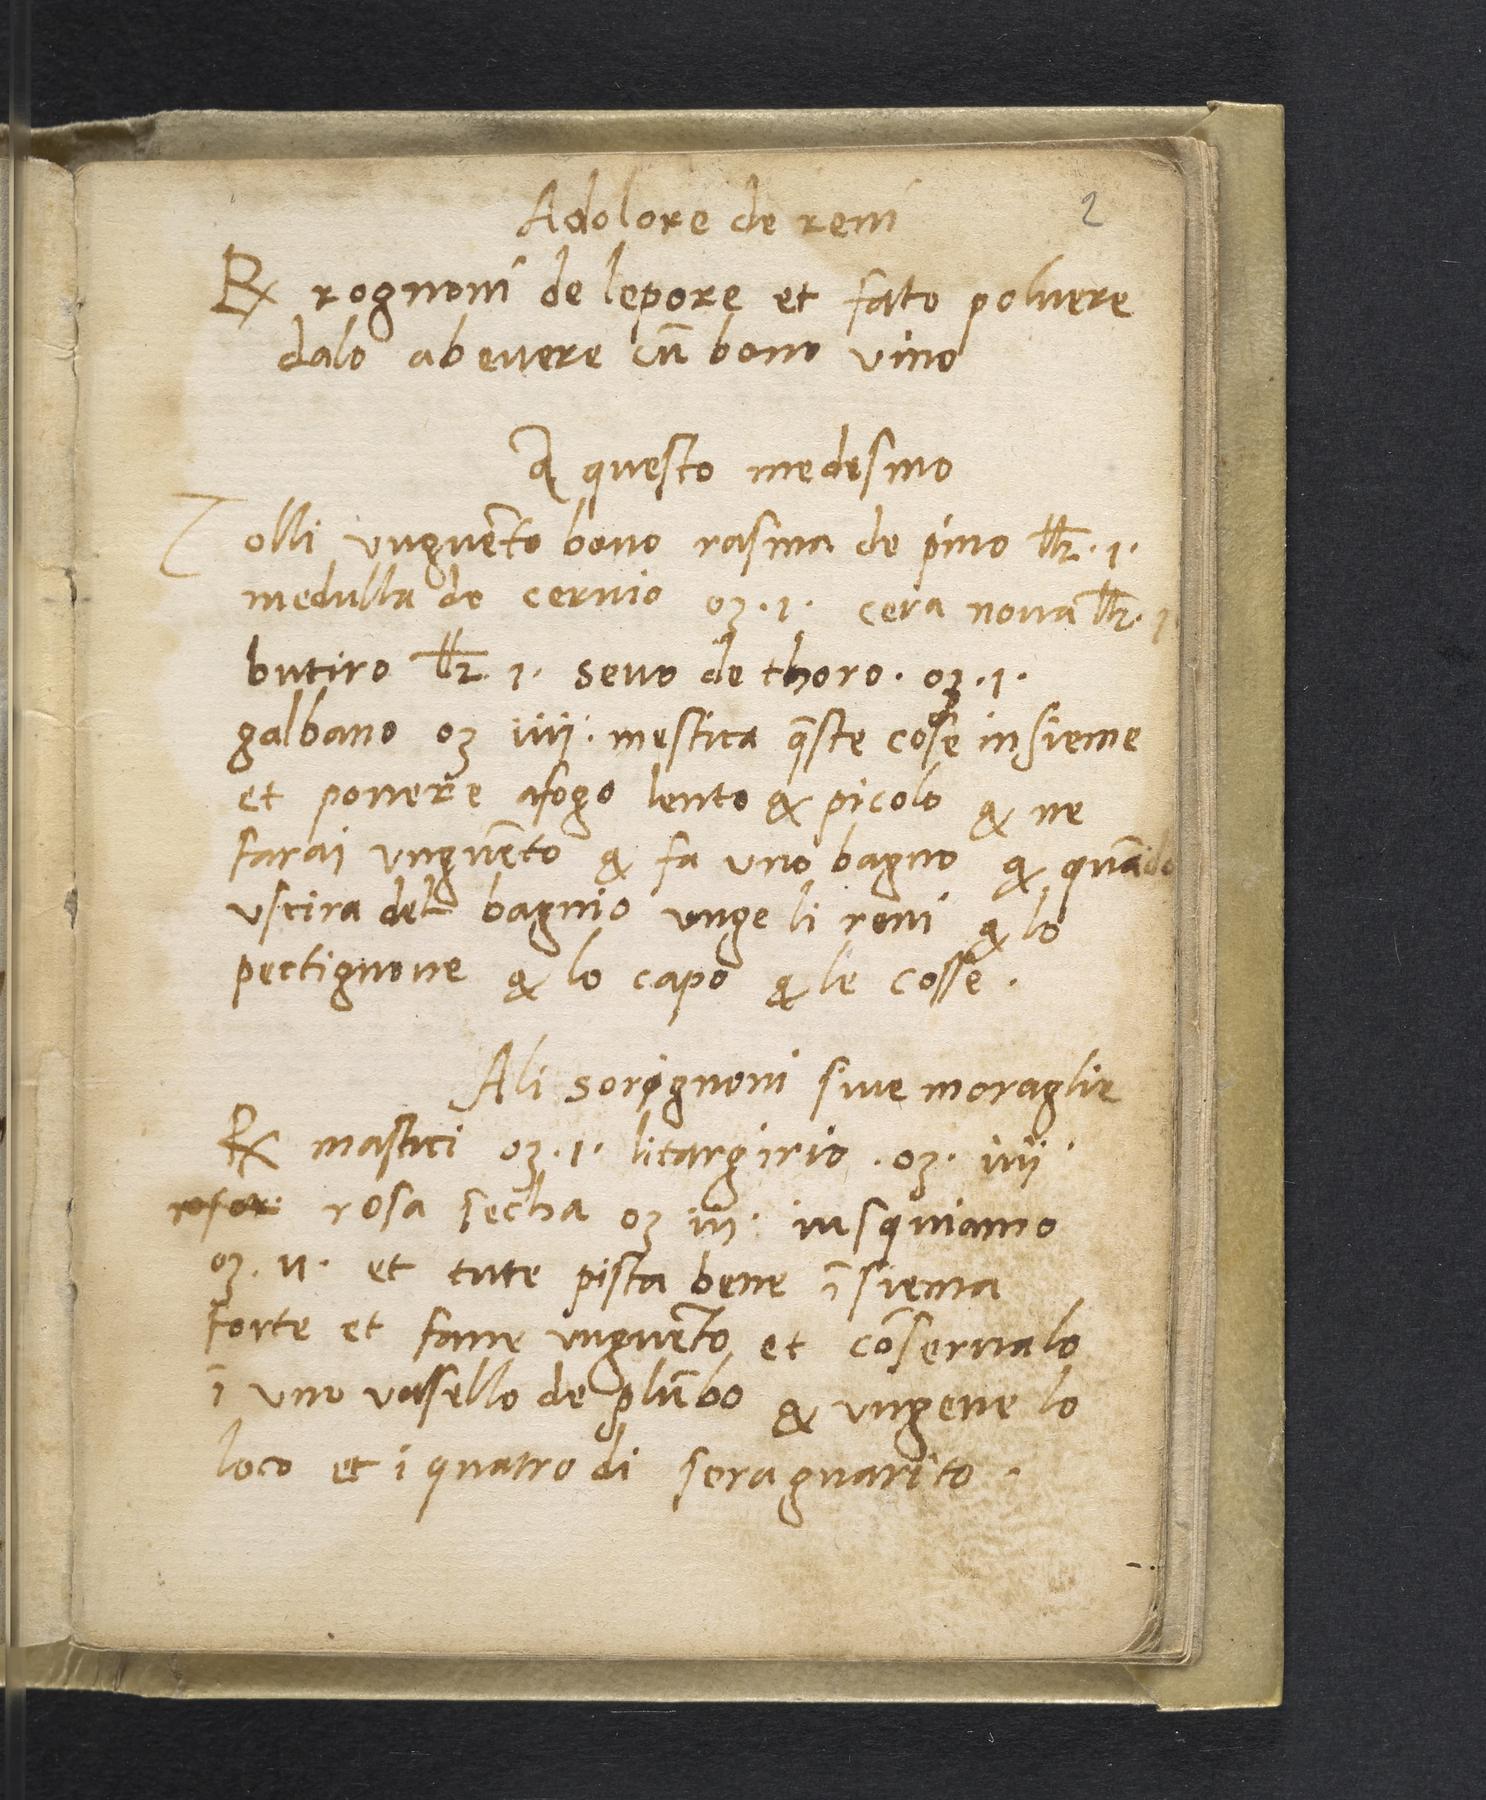 2
Adolore de reni
℞ rognoni de lepore et fato poluere
dalo abeuere cũ bono vino
A questo medesmo
Tolli vnguẽto bono rasina de pino łłr. 1.
medulla de ceruio oʒ. 1. cera noua łłr. 1
butiro łłr. 1. seuo de thoro. oʒ. 1.
galbano oʒ iiij. mestica q̃ste cose insieme
et ponere afogo lento & picolo & ne
farai vnguẽto & fa vno bagno & quãdo
vscira del bagnio vnge li reni & lo
pectignone & lo capo & le cosse.
Ali sorognoni siue moraglie
℞ mastici oʒ. 1. litargirio. oʒ. iiij
rosa secha oʒ iij. iusquiamo
oʒ. ii. et tute pista bene ĩsiema
forte et fane vnguẽto et cõserualo
ĩ vno vasello de plũbo & vngene lo
loco et i quatro di sera guarito.